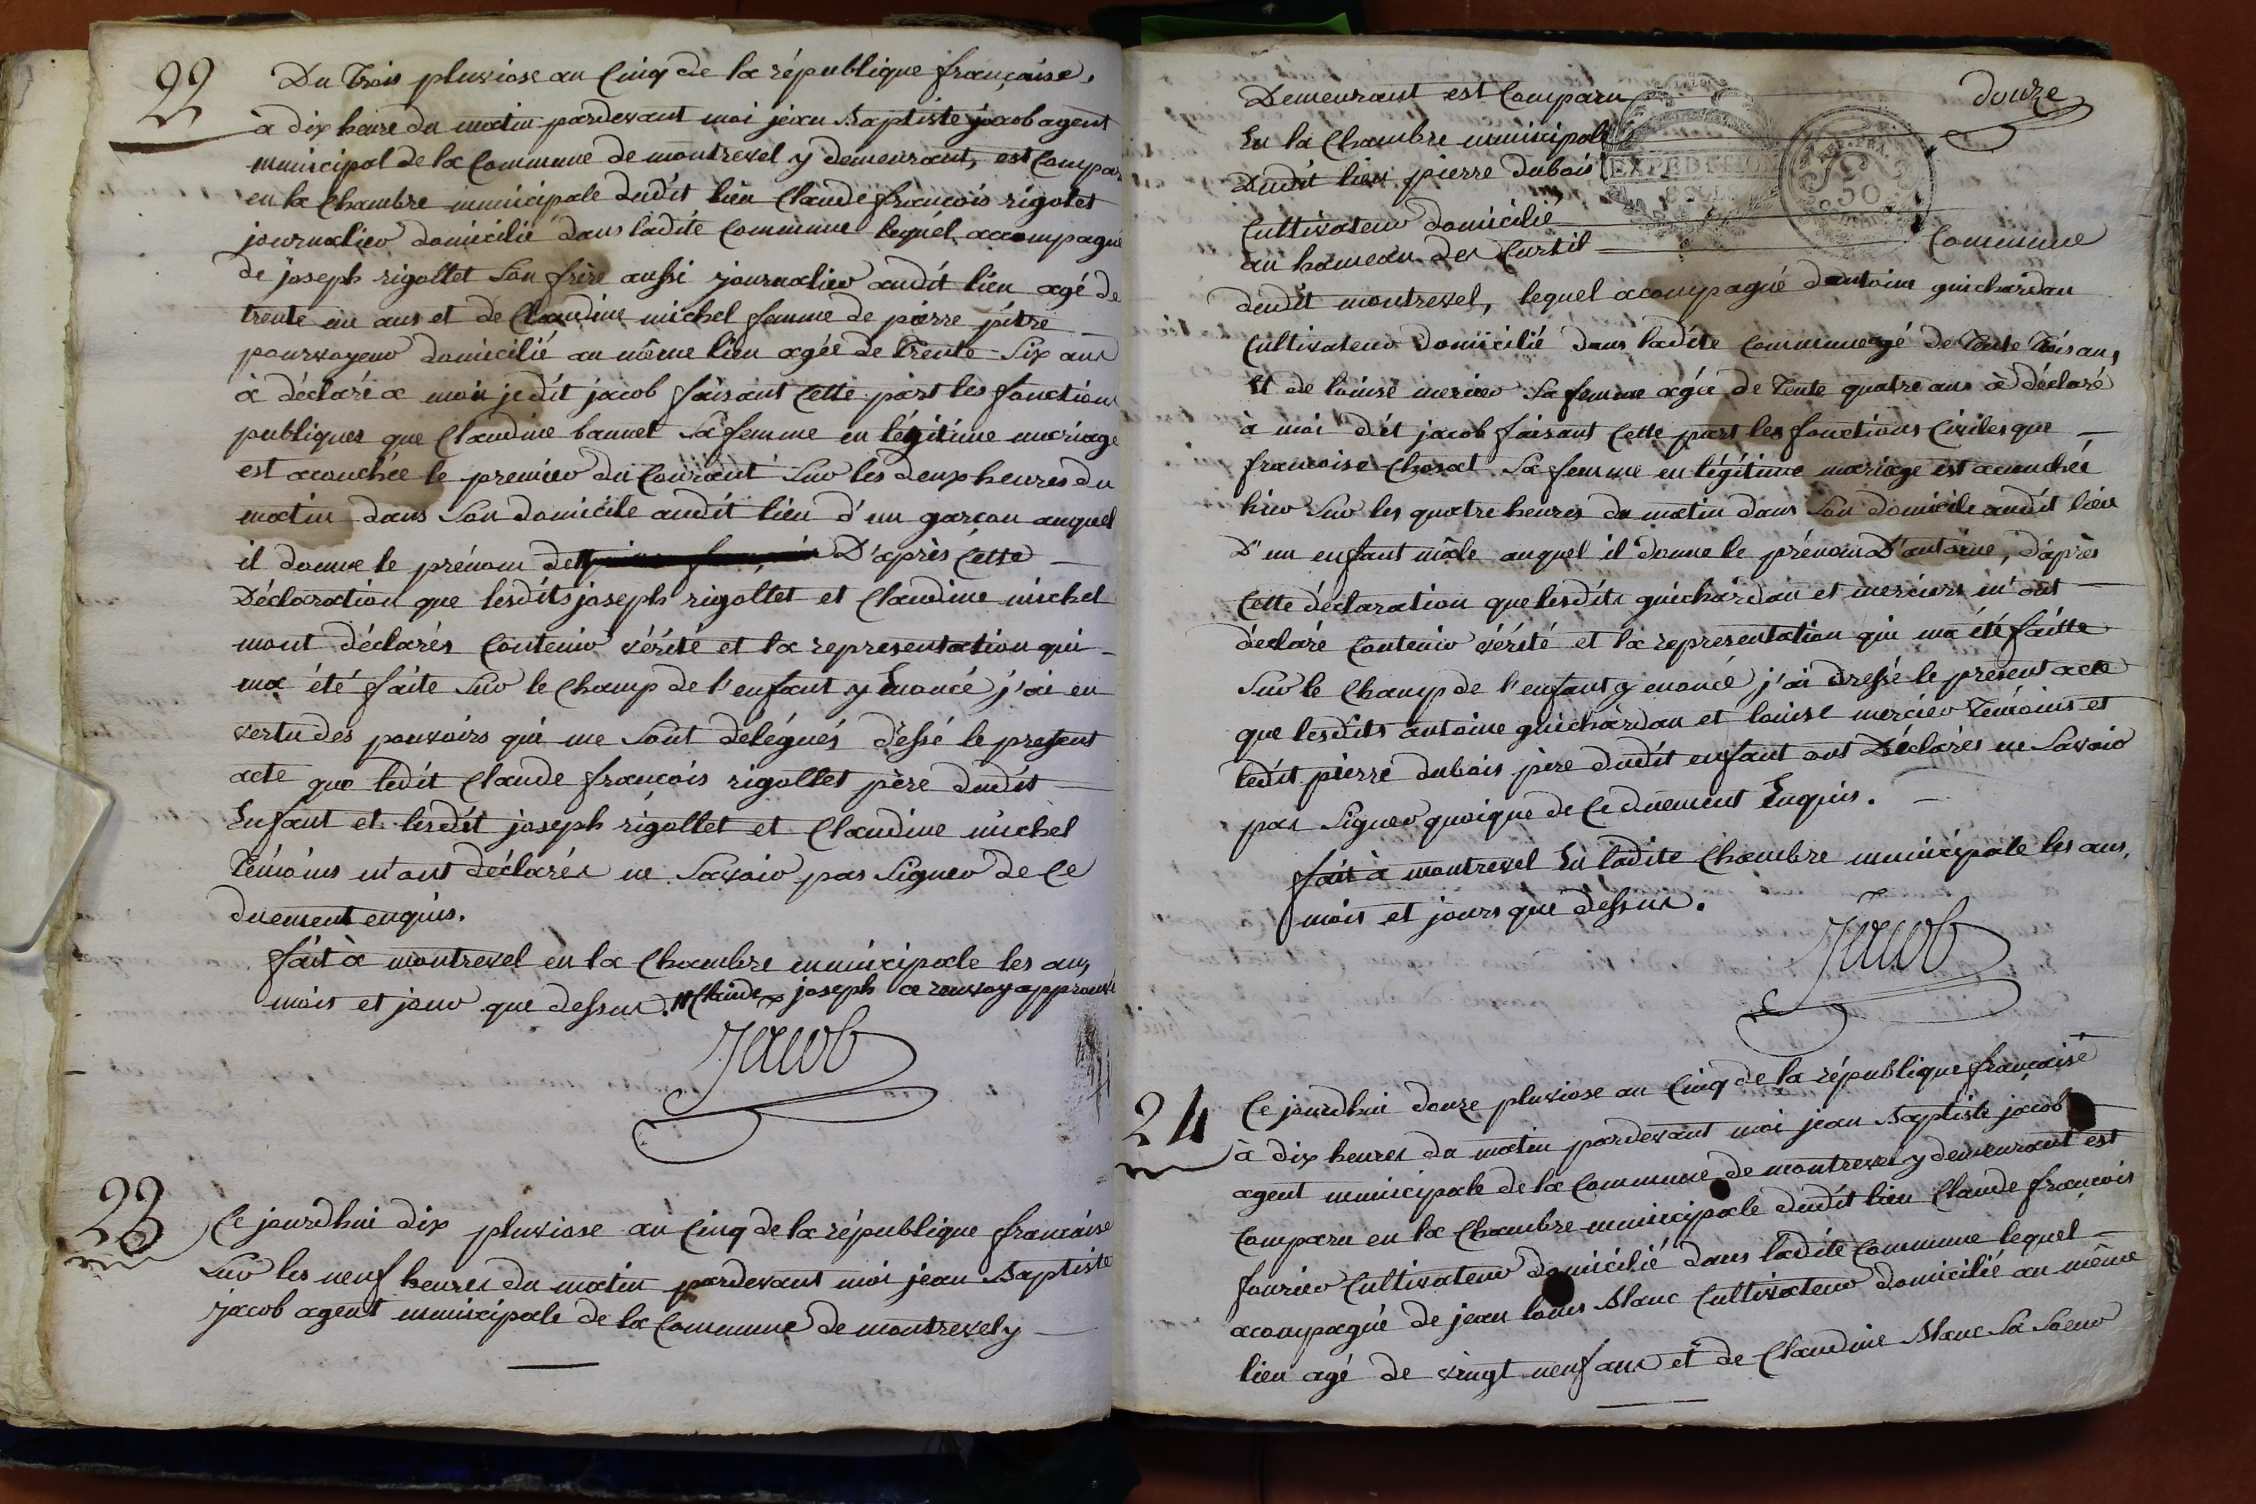 22
Du trois pluviose an Cinq de la république française,
à dix heure du matin pardevant moi jean Baptiste jacob agent
municipal de la Commune de montrevel y demeurant, est Compar
en la Chambre municipale dudit lieu Claude françois rigolet
journalier domicilié dans ladite Commune lequel accompagné
de joseph rigollet Son frère aussi journalier audit lieu agé de
trente un ans et de Claudine michel femme de pierre pitre
pourvoyeur domicilié au même lieu agée de Trente Six ans
à déclaré a moi je dit jacob faisant Cette part les fonctions
publiques que Claudine bannet Sa femme en légitime mariage
est acouchée le premier du Courant Sur les deux heures du
matin dans Son domicile audit lieu d'un garcon auquel
il donne le prénom de D'après Cette
Déclaration que lesdits joseph rigollet et Claudine michel
mont déclarés Contenir vérité et la representation qui
ma été faite Sur le Champ de l'enfant y Enoncé j'ai en
vertu des pouvoirs qui me Sont délégués dressé le present
acte que ledit Claude françois rigollet père dudit
Enfant et lesdit joseph rigollet et Claudine michel
Témoins m'ont déclarés ne Savoir pas Signer de Ce
duement enquis.
fait à montrevel en la Chambre municipale les an,
mois et jour que dessus. # Claude joseph ce renvoy approuvé
Jacob
23
Ce jourdhui dix pluviose an Cinq de la république francaise
Sur les neuf heures du matin pardevant moi jean Baptiste
jacob agent municipale de la Commune de montrevel y
douze
Demeurant est Comparu
En la Chambre municipale
Dudit lieu pierre dubois
Cultivateur domicilié
au hameau des Curtil Commune
EXPEDITION
REP. FRA.
50
dudit montrevel, lequel acompagné dantoine guichardan
Cultivateur domicilié dans ladite Commune agé de Trente Trois ans,
Et de louise mercier Sa femme agée de Trente quatre ans à déclaré
à moi dit jacob faisant Cette part les fonctions Civiles que
francoise Chosat Sa femme en légitime mariage est acouchée
hier Sur les quatre heures du matin dans Son domicile audit lieu
D'un enfant mâle auquel il donne le prénom D'antoine, d'après
Cette déclaration que lesdits guichardan et merciers m'ont
déclaré Contenir vérité et la representation qui ma été faitte
Sur le Champ de l'enfant y enoncé j'ai dressé le présent acte
que lesdits antoine guichardan et louise mercier Témoins et
ledit pierre dubois père dudit enfant ont Déclarés ne Savoir
pas Signer quoique de Ce duement Enquis.
fait à montrevel En ladite Chambre municipale les ans,
mois et jours que dessus.
Jacob
24
Ce jourdhui douze pluviose an Cinq de la république française
à dix heures du matin pardevant moi jean Baptiste jacob
agent municipale de la Commune de montrevel y demeurant est
Comparu en la Chambre municipale dudit lieu Claude françois
fourier Cultivateur domicilié dans ladite Commune lequel
acompagné de jean louis Blanc Cultivateur domicilié au même
lieu agé de vingt neuf ans et de Claudine Blanc Sa Soeur